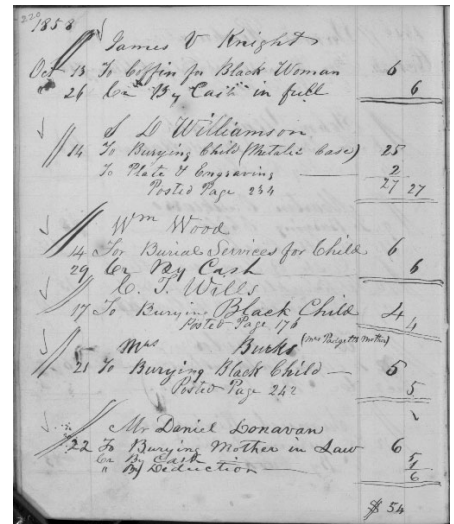 220
1858
James V Knight
Oct 13 To Coffin for Black Woman 6
" 26 Cr By Cash in full 6
S D Williamson
14 To Burying Child (Metalic Case) 25
To Plate & Engraving — 2
Posted Page 234 27 27
Wm Wood
14 For Burial Services for Child 6
29 Cr By Cash 6
C. T. Wills
17 To Burying Black Child 4
Posted Page 176 4
Mrs Burks (Mrs Padgetts Mother)
21 To Burying Black Child — 5
Posted Page 242 5
Mr Daniel Donavan
22 To Burying Mother in Law 6
Cr By Cash 5
" By Deduction — 1
6
$ 54